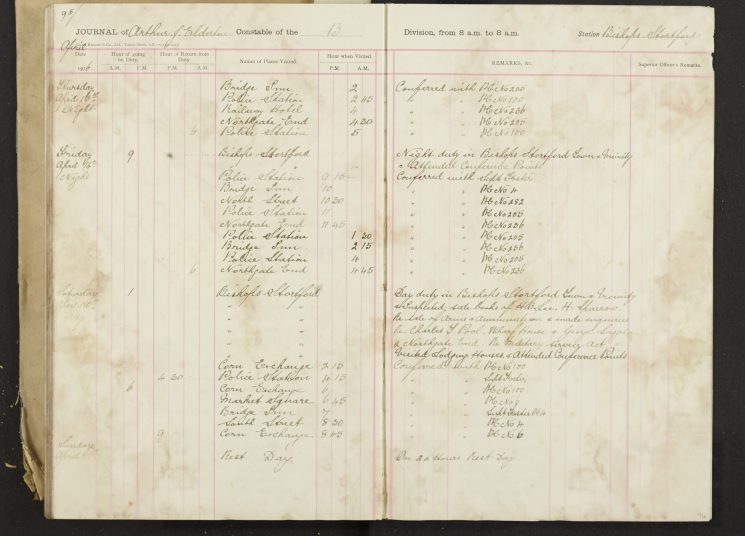 95
JOURNAL of Arthur J. Elderton Constable of the B Division, from 8 a.m. to 8 a.m. Station Bishops Stortford
April
Date Hour of going on Duty. Hour of Return from Duty. Names of Places Visited. Hour when Visited. REMARKS, &c. Superior Officer's Remarks.
1916 A.M. P.M. A.M. P.M. P.M. A.M.
Thursday Bridge Inn 2 Conferred with PC No 205
April Police Station 2 45 " " PC No 100
Night Railway Hotel 4 " " PC No 236
Northgate End 4 30 " " PC No 205
6 Police Station 5 " " PC No 100
Friday 9 Bishops Stortford Night duty in Bishops Stortford Town & Vicinity
April " & Attended Conference Points
Night Police Station 9 15 Conferred with Supt Foster
Bridge Inn 10 " " PC No 4
North Street 10 30 " " PC No 292
Police Station 11 " " PC No 205
Northgate End 11 45 " " PC No 236
Police Station 1 30 " " PC No 205
Bridge Inn 2 15 " " PC No 236
Police Station 4 " " PC No 205
6 Northgate End 4 45 " " PC No 236
Saturday 1 Bishops Stortford Day duty in Bishops Stortford Town & Vicinity
" " & Inspected sale books of H.
" " Re sale of Arms & Ammunition & made enquiries
" " Re Charles Pool, House & George
" " & Northgate End Re Military Service Act
" Visited Lodging Houses & Attended Conference Points
Corn Exchange 2 15 Conferred with PC No 100
4 30 Police Station 4 15 " " Supt Foster
6 Corn Exchange 6 " " PC No 100
Market Square 6 45 " " PC No 9
Bridge Inn 7 " " Supt Foster
South Street 8 20 " " PC No 4
9 Corn Exchange 8 45 " " PC No 6
Sunday
April Rest Day On 24 hours Rest Day